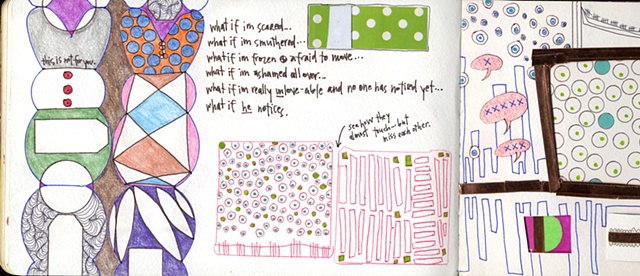 this is not for you.
what if im scared...
what if im smuthered...
what if im frozen & afraid to move...
what if im ashamed all over...
what if im really unlove-able and no one has noticed yet...
what if he notices.
see how they
almost touch - but
miss each other.
x
x
xxxxx
xxxxx
xxx